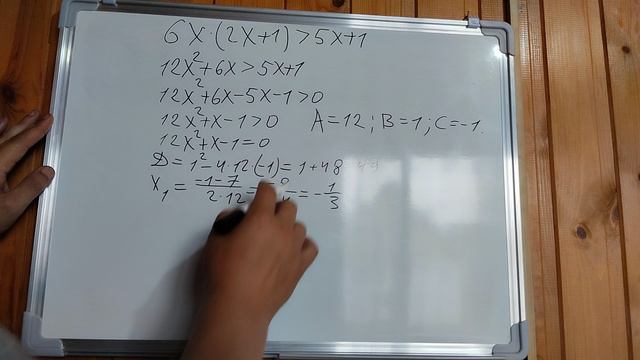 6x·(2x+1)>5x+1
12x²+6x>5x+1
12x²+6x-5x-1>0
12x²+x-1>0 A=12; B=1; C=-1.
12x²+x-1=0
D=1²-4·12·(-1)=1+48 49
x₁ = (-1-7)/(2·12) = = -1/3